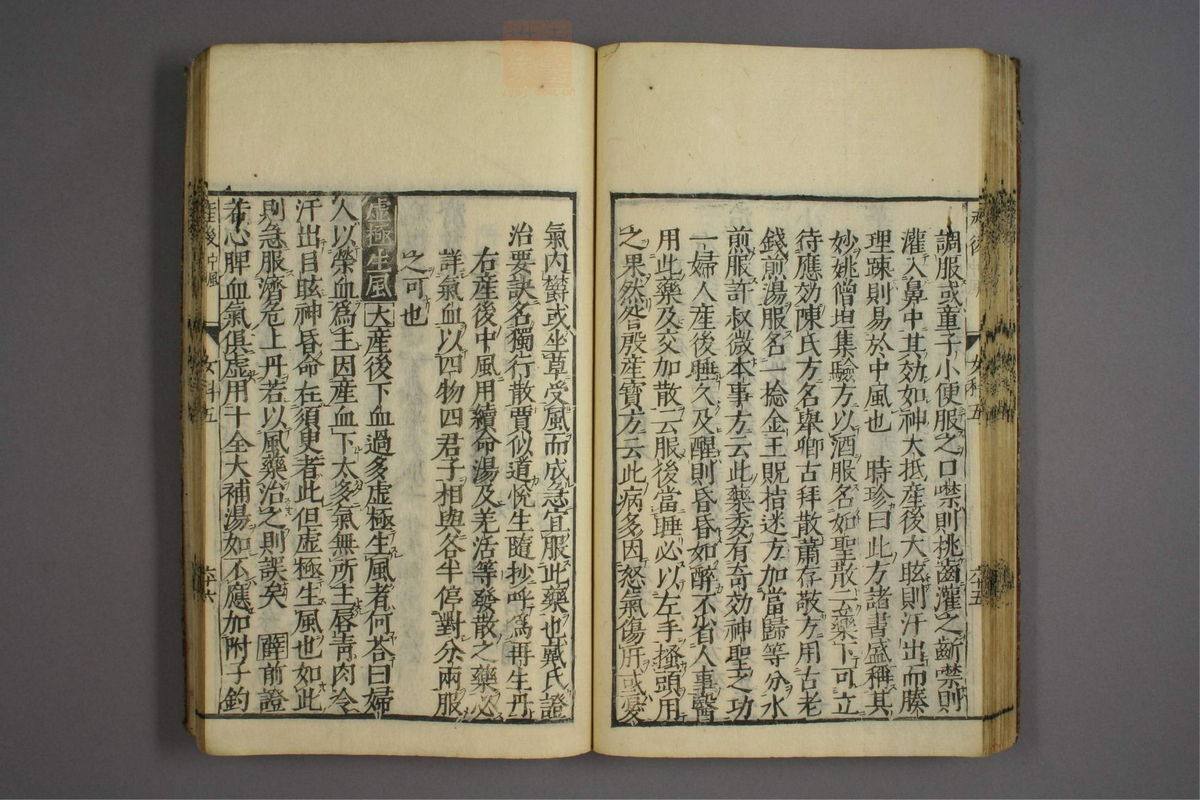 調服或童子小便服之口噤則挑齒灌之齗噤則
灌入鼻中其効如神大抵産後大眩則汗出而腠
理踈則易於中風也　時珍曰此方諸書盛稱其
妙姚僧坦集驗方以酒服名如聖散云藥下可立
待應効陳氏方名舉卿古拜散蕭存敬方用古老
錢煎湯服名一捻金王貺指迷方加當歸等分水
煎服許叔微本事方云此藥委有奇効神聖之功
一婦人産後睡久及醒則昏昏如醉不省人事醫
用此藥及交加散云服後當睡必以左手搔頭用
之果然昝殷産寶方云此病多因怒氣傷肝或憂
六十五
氣内欝或坐草受風而成急宜服此藥也戴氏證
治要訣名獨行散賈似道悦生隨抄呼爲再生丹
右産後中風用續命湯及羌活等發散之藥必
詳氣血以四物四君子相與各半停對分兩服
之可也
虚極生風 大産後下血過多虚極生風者何荅曰婦
人以榮血爲主因産血下太多氣無所主唇青肉冷
汗出目眩神昏命在須臾者此但虚極生風也如此
則急服濟危上丹若以風藥治之則誤矣　薛前證
若心脾血氣俱虚用十全大補湯如不應加附子鈎
産後中風
女科五
六十六